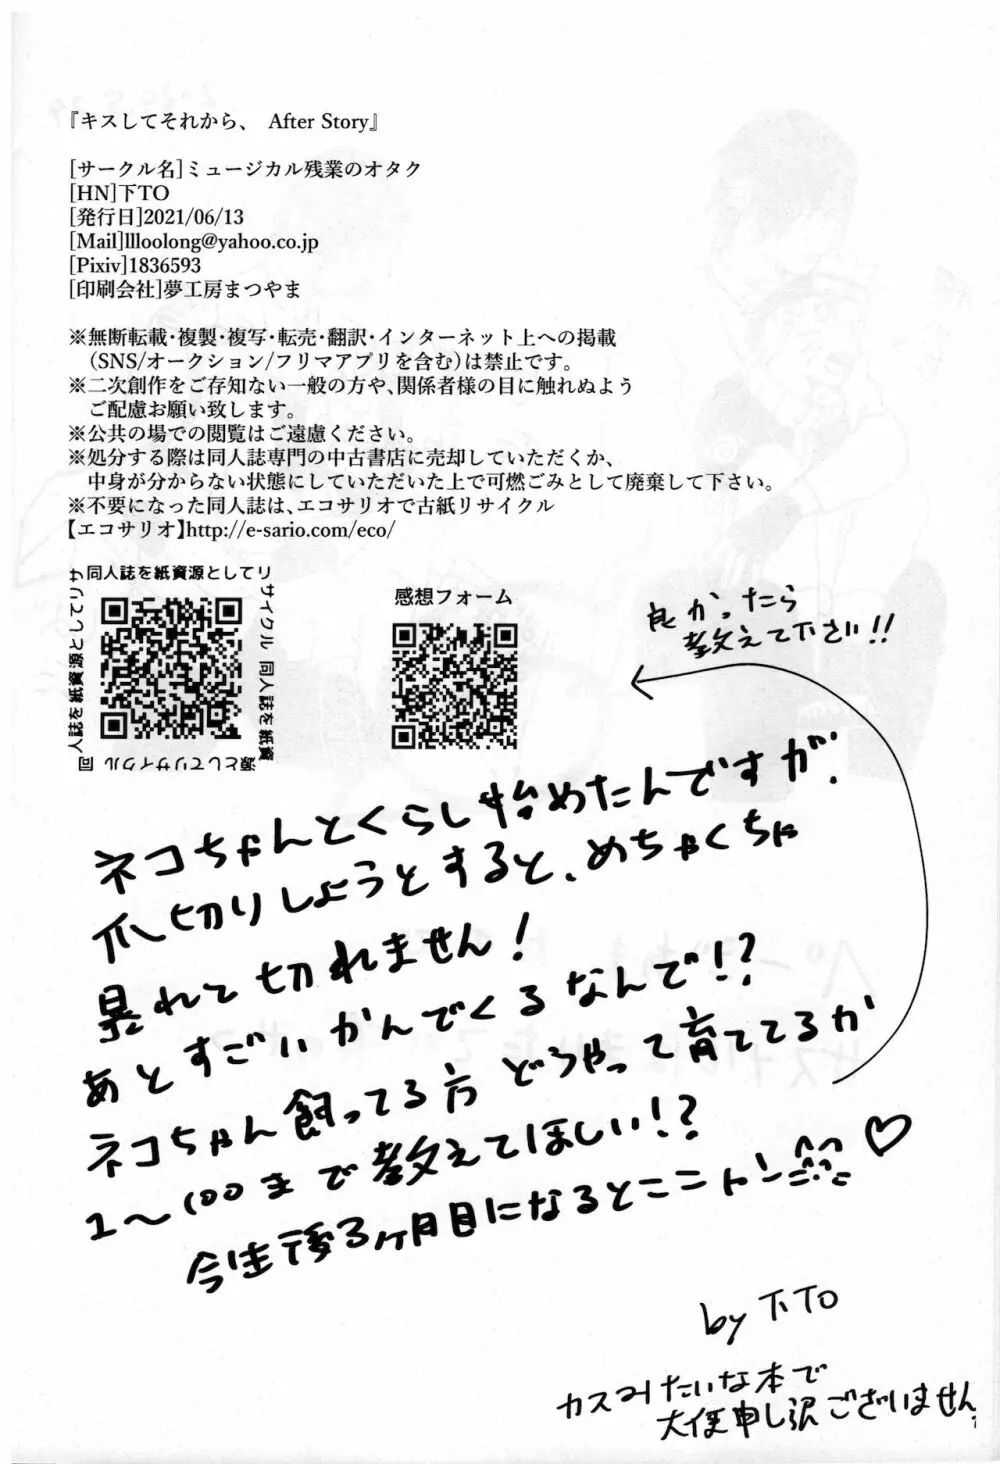 『キスしてそれから、 After Story』
[サークル名]ミュージカル残業のオタク
[HN]下TO
[発行日]2021/06/13
[Mail]llloolong@yahoo.co.jp
[Pixiv]1836593
[印刷会社]夢工房まつやま
※無断転載・複製・複写・転売・翻訳・インターネット上への掲載
（SNS/オークション/フリマアプリを含む）は禁止です。
※二次創作をご存知ない一般の方や、関係者様の目に触れぬよう
ご配慮お願い致します。
※公共の場での閲覧はご遠慮ください。
※処分する際は同人誌専門の中古書店に売却していただくか、
中身が分からない状態にしていただいた上で可燃ごみとして廃棄して下さい。
※不要になった同人誌は、エコサリオで古紙リサイクル
【エコサリオ】http://e-sario.com/eco/
同人誌を紙資源としてリ
サイクル 同人誌を紙資
源としてリサイクル 同
人誌を紙資源としてリサ
感想フォーム
良かったら
教えて下さい!!
ネコちゃんとくらし始めたんですが、
爪切りしようとすると、めちゃくちゃ
暴れて切れません!
あとすごいかんでくるなんで!?
ネコちゃん飼ってる方どうやって育ててるか
1〜100まで教えてほしい!?
今生後3ヶ月目になるとこ ニャン
by 下TO
カスみたいな本で
大変申し訳ございません